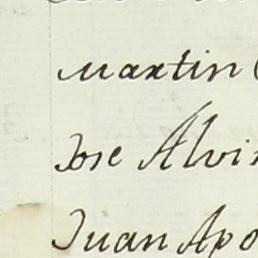 Martin
Jose Alvi
Juan Apo